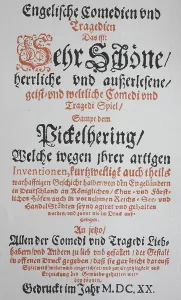 Engelische Comedien vnd
Tragedien
Das ist:
Sehr Schöne/
herrliche vnd außerlesene/
geist- vnd weltliche Comedi vnd
Tragedi Spiel/
Sampt dem
Pickelhering/
Welche wegen jhrer artigen
Inventionen, kurtzweilige auch theils
warhafftigen Geschicht halber/ von den Engelländern
in Deutschland an Königlichen/ Chur- vnd Fürst-
lichen Höfen auch in vornehmen Reichs- See- vnd
Handel Städten seynd agiret vnd gehalten
worden/ vnd zuvor nie im Druck auß-
gangen.
An jetzo/
Allen der Comedi vnd Tragedi Lieb-
habern/ vnd Andern zu lieb vnd gefallen/ der Gestalt
in offenen Druck gegeben/ daß sie gar leicht darauß
Spielweiß widerumb angerichtet/ vnd zur Ergetzligkeit vnd
Erquickung des Gemüths gehalten wer-
den können.
Gedruckt im Jahr M.DC.XX.